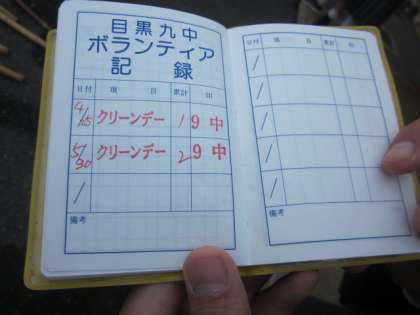 目黒九中
ボランティア
記 録
日付 項 目 累計 印
4/15 クリーンデー 1 9中
5/30 クリーンデー 2 9中
/
備考
日付 項 目 累計 印
/
/
/
/
/
備考